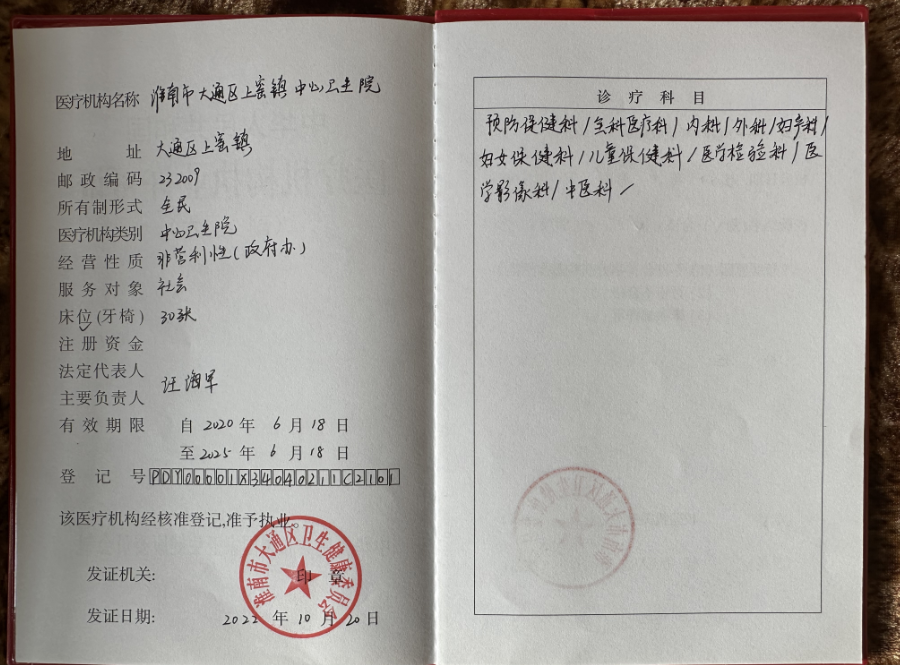 医疗机构名称 淮南市大通区上窑镇中心卫生院
地 址 大通区上窑镇
邮政编码 232009
所有制形式 全民
医疗机构类别 中心卫生院
经营性质 非营利性(政府办)
服务对象 社会
床位(牙椅) 30张
注册资金
法定代表人
主要负责人 汪海军
有效期限 自2020年6月18日
至2025年6月18日
登记号 PDY00001X34040211C2101
该医疗机构经核准登记,准予执业。
发证机关: 印章
发证日期: 2022年10月20日
淮南市大通区卫生健康委员会
诊疗科目
预防保健科/全科医疗科/内科/外科/妇产科/
妇女保健科/儿童保健科/医学检验科/医
学影像科/中医科/